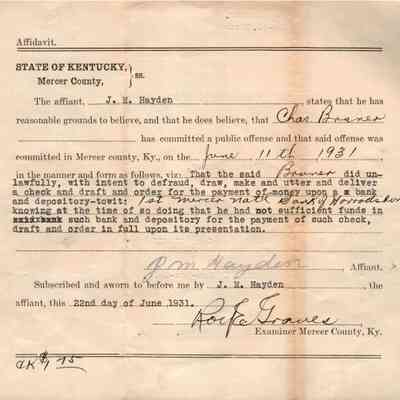 Affidavit.
STATE OF KENTUCKY, } ss.
Mercer County,
The affiant, J. M. Hayden states that he has
reasonable grounds to believe, and that he does believe, that Chas. Bruner
has committed a public offense and that said offense was
committed in Mercer county, Ky., on the June 11th 1931
in the manner and form as follows, viz: That the said Bruner did un-
lawfully, with intent to defraud, draw, make and utter and deliver
a check and draft and order for the payment of money upon a bank
and depository-towit: 1st Mercer Natl Bank of Harrodsburg
knowing at the time of so doing that he had not sufficient funds in
such bank and depository for the payment of such check,
draft and order in full upon its presentation.
J M Hayden, Affiant.
Subscribed and sworn to before me by J. M. Hayden, the
affiant, this 22nd day of June 1931.
Graves
Examiner Mercer County, Ky.
CK $1 75